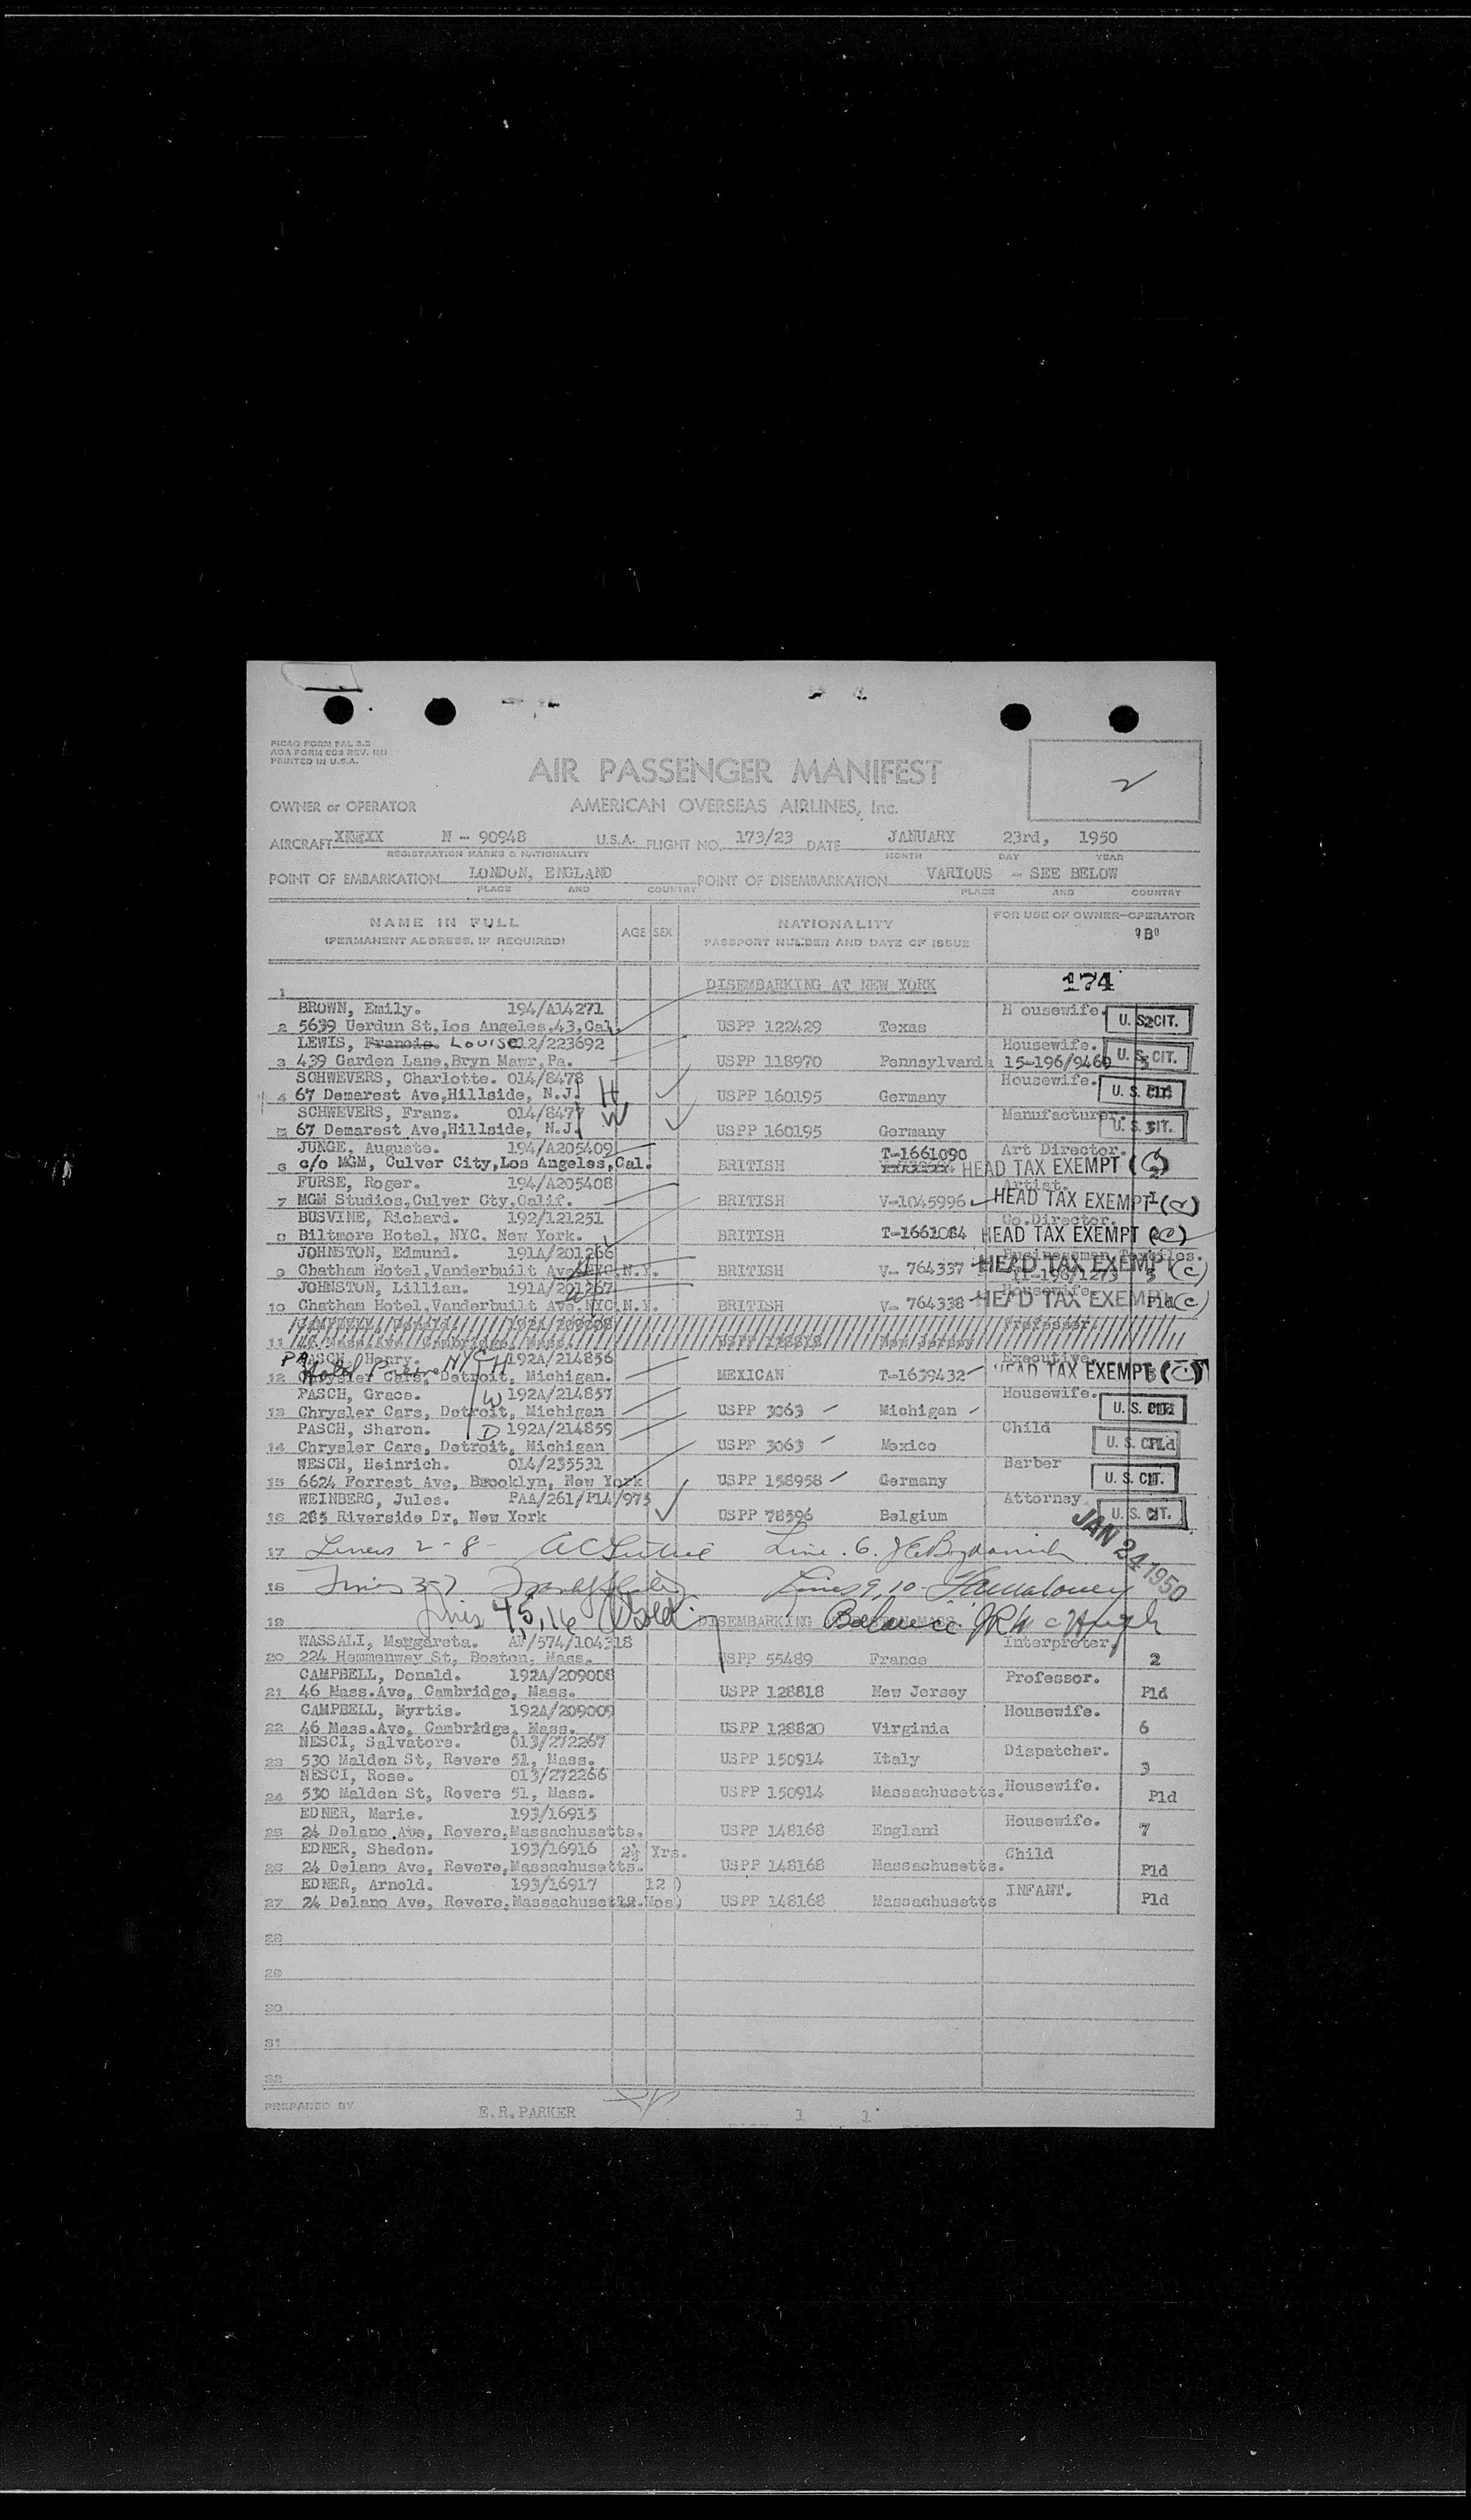 PICAO FORM FAL 3.2
AOA FORM 603 REV.
PRINTED IN U.S.A.
AIR PASSENGER MANIFEST
OWNER or OPERATOR AMERICAN OVERSEAS AIRLINES, Inc.
AIRCRAFT N - 90948 U.S.A. FLIGHT NO. 173/23 DATE JANUARY 23rd, 1950
REGISTRATION MARKS & NATIONALITY MONTH DAY YEAR
POINT OF EMBARKATION LONDON, ENGLAND POINT OF DISEMBARKATION VARIOUS - SEE BELOW
PLACE AND COUNTRY PLACE AND COUNTRY
NAME IN FULL AGE SEX NATIONALITY FOR USE OF OWNER-OPERATOR
(PERMANENT ADDRESS, IF REQUIRED) PASSPORT NUMBER AND DATE OF ISSUE "B"
1 DISEMBARKING AT NEW YORK 174
BROWN, Emily. 194/A14271 Housewife.
2 5639 Uerdun St, Los Angeles.43,Cal. USPP 122429 Texas U. S. CIT. 2
LEWIS, Francis. Louise 012/223692 Housewife.
3 439 Garden Lane,Bryn Mawr,Pa. USPP 118970 Pennsylvania 15-196/9460 U. S. CIT.
SCHWEVERS, Charlotte. 014/8478 H Housewife.
4 67 Demarest Ave,Hillside, N.J. USPP 160195 Germany U. S. CIT.
SCHWEVERS, Franz. 014/8477 W Manufacturer.
5 67 Demarest Ave,Hillside, N.J. USPP 160195 Germany U. S. CIT.
JUNGE, Auguste. 194/A205409 T-1661090 Art Director.
6 c/o MGM, Culver City,Los Angeles,Cal. BRITISH HEAD TAX EXEMPT
FURSE, Roger. 194/A205408 Artist.
7 MGM Studios,Culver Cty,Calif. BRITISH V-1045996 HEAD TAX EXEMPT
BUSVINE, Richard. 192/121251 Co.Director.
8 Biltmore Hotel, NYC. New York. BRITISH T-1661084 HEAD TAX EXEMPT
JOHNSTON, Edmund. 191A/201266 Businessman Textiles.
9 Chatham Hotel,Vanderbuilt Ave.NYC,N.Y. BRITISH V- 764337 HEAD TAX EXEMPT 11-196/1273 (C)
JOHNSTON, Lillian. 191A/201267 Housewife.
10 Chatham Hotel,Vanderbuilt Ave.NYC,N.Y. BRITISH V- 764338 HEAD TAX EXEMPT Pld (C)
CAMPBELL, Donald. 192A/209008 Professor.
11 46 Mass.Ave, Cambridge, Mass. USPP 128818 New Jersey
PASCH, Henry. 192A/214856 Executive.
12 Chrysler Cars, Detroit, Michigan. MEXICAN T-1639432 HEAD TAX EXEMPT
PASCH, Grace. W 192A/214857 Housewife.
13 Chrysler Cars, Detroit, Michigan USPP 3063 Michigan U. S. CIT.
PASCH, Sharon. D 192A/214859 Child
14 Chrysler Cars, Detroit, Michigan USPP 3063 Mexico U. S. CIT. Pld
WESCH, Heinrich. 014/235531 Barber
15 6624 Forrest Ave, Brooklyn, New York USPP 158958 Germany U. S. CIT.
WEINBERG, Jules. PAA/261/P14/973 Attorney
16 285 Riverside Dr, New York USPP 78596 Belgium U. S. CIT.
JAN 24 1950
17 Lines 2 - 8 - Line . 6.
18 Lines 3-7 Lines 9, 10 -
19 DISEMBARKING Balance
WASSALI, Margareta. AF/574/104318 Interpreter.
20 224 Hemmenway St, Boston, Mass. USPP 55489 France 2
CAMPBELL, Donald. 192A/209008 Professor.
21 46 Mass.Ave, Cambridge, Mass. USPP 128818 New Jersey Pld
CAMPBELL, Myrtis. 192A/209009 Housewife.
22 46 Mass.Ave, Cambridge, Mass. USPP 128820 Virginia 6
NESCI, Salvatore. 013/272267 Dispatcher.
23 530 Malden St, Revere 51, Mass. USPP 150914 Italy 3
NESCI, Rose. 013/272266 Housewife.
24 530 Malden St, Revere 51, Mass. USPP 150914 Massachusetts. Pld
EDNER, Marie. 193/16915 Housewife.
25 24 Delano Ave, Revere,Massachusetts. USPP 148168 England 7
EDNER, Shedon. 193/16916 2½ Yrs. Child
26 24 Delano Ave, Revere,Massachusetts. USPP 148168 Massachusetts. Pld
EDNER, Arnold. 193/16917 12 ) INFANT.
27 24 Delano Ave, Revere,Massachusetts. Mos) USPP 148168 Massachusetts Pld
28
29
30
31
32
PREPARED BY E.R.PARKER 1 1